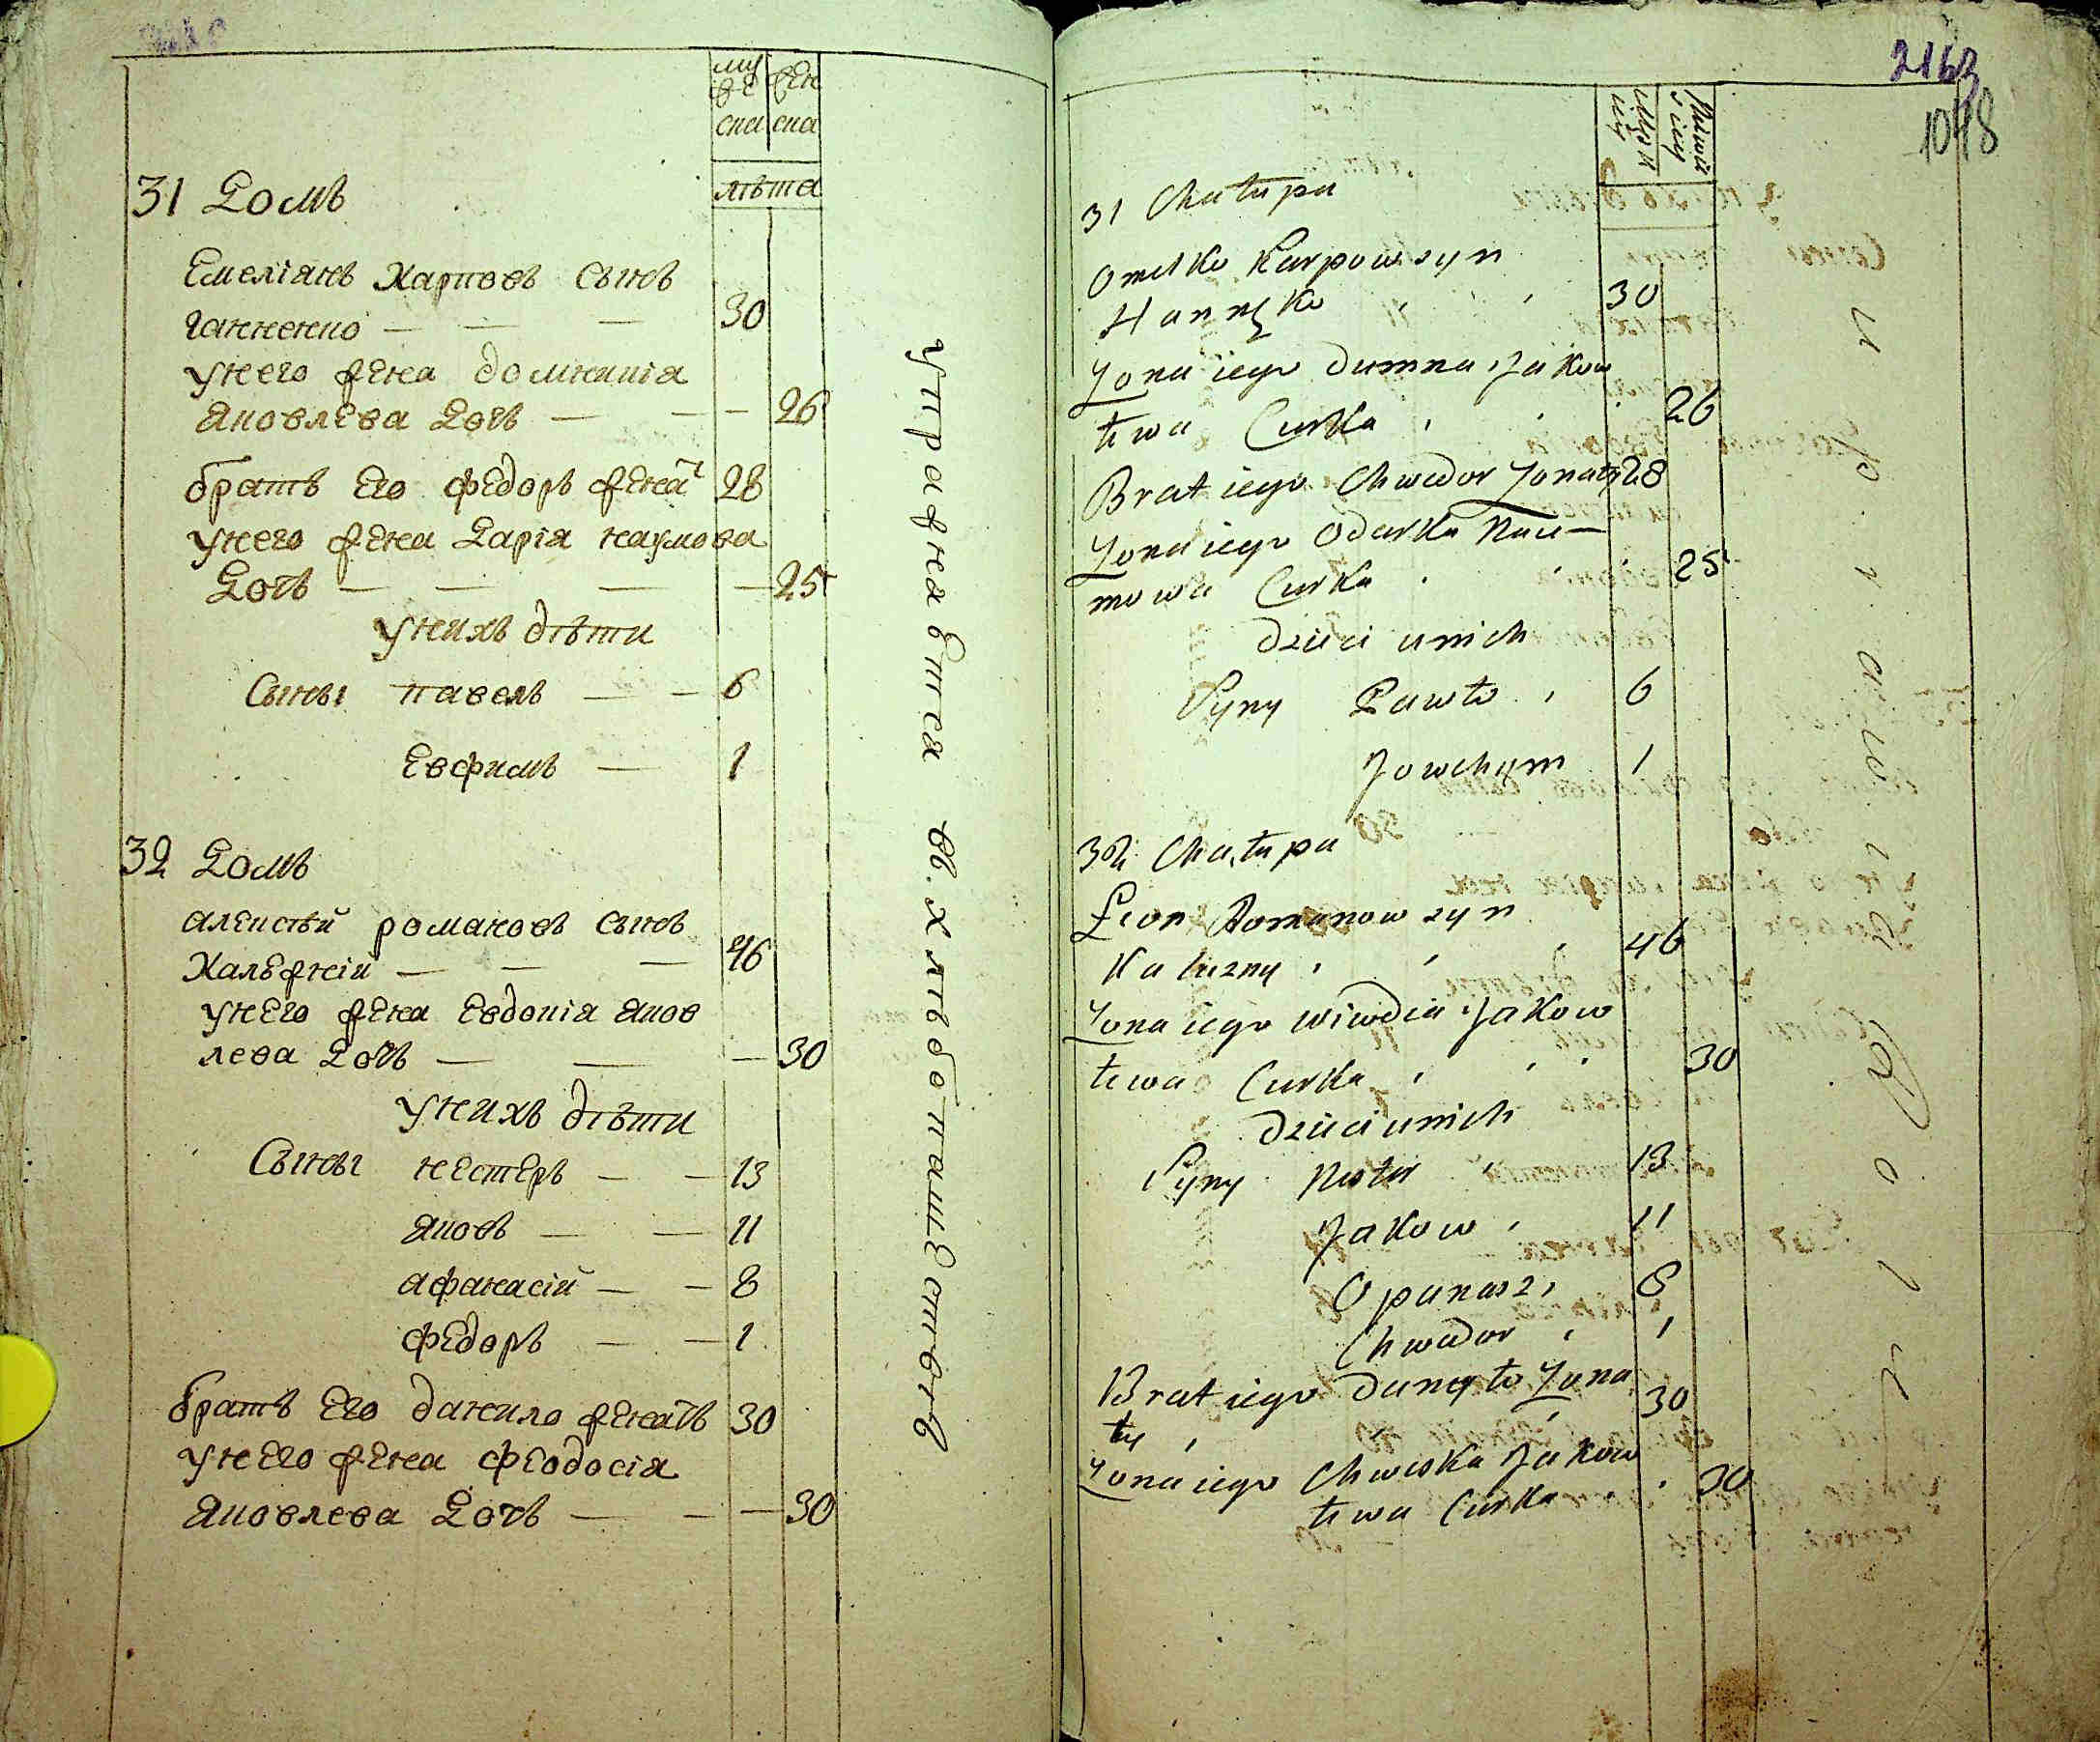 муже
ска
жен
ска
лѣта
31 Домъ
Емеліянъ Карповъ сынъ
ганненко — — — 30
унего жена домникія
яковлева дочь — — — 26
братъ его федоръ женатъ 28
унего жена дарія наумова
дочь — — — — 25
унихъ дѣти
сыны павелъ — — 6
евфимъ — 1
32 Домъ
алексѣй романовъ сынъ
Калѣжній — — — 46
унего жена евдокія яков
лева дочь — — — 30
унихъ дѣти
Сыны нестеръ — — 13
яковъ — — 11
афанасій — — 8
федоръ — — 1
братъ его данило женатъ 30
унего жена феодосія
яковлева дочь — — — 30
упражняется въ хлѣбопашествѣ
2163
1048
31 Chałupa
Omelko Karpow syn
Hannęko 30
Żona iego Dumna Jakow
łewa Curka 26
Brat iego Chwedor Żonaty 28
Żona iego Odarka Nau—
mowa Curka 25
Dzieci unich
Syny Pawło 6
Jowchym 1
32 Chałupa
Leon Romanow syn
Kaluzny 46
Żona iego Wiwdia Jakow
łewa Curka 30
Dzieci unich
Syny Nester 13
Jakow 11
Opanasz 8
Chwedor 1
Brat iego Danyło Żona
ty 30
Żona iego Chweska Jakow
łewa Curka 30